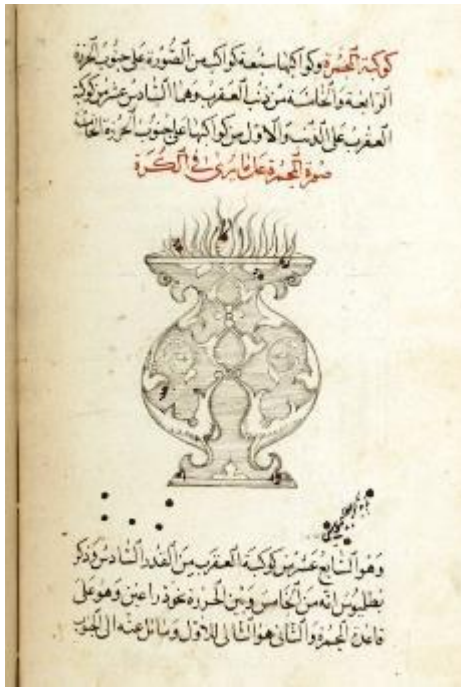 كوكبة المجمرة وكواكبها سبعة كواكب من الصورة على جنوب الخرزة
الرابعة والخامسة من ذنب العقرب وهما السادس عشر من كوكبة
العقرب على الذنب والاول من كواكبها على جنوب الخرزة الخامسة
صورة المجمرة على ما يرى في الكرة
وهو السابع عشر من كوكبة العقرب من القدر السادس وذكر
بطليوس انه من الخامس وبين الخرزة نحو ذراعين وهو على
قاعدة المجمرة والثاني هو التالي للاول ومائل عنه الى الجنوب